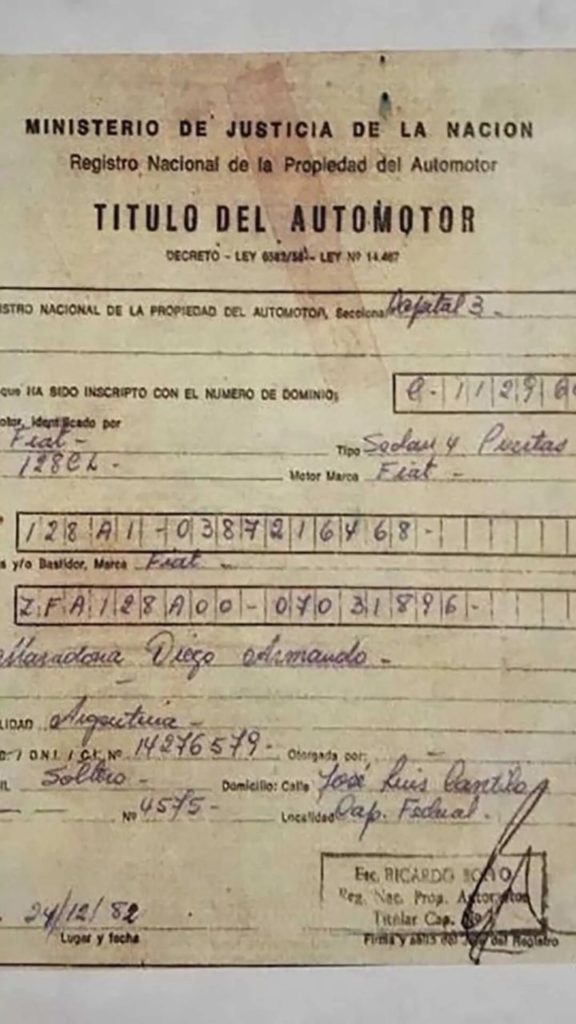 MINISTERIO DE JUSTICIA DE LA NACION
Registro Nacional de la Propiedad del Automotor
TITULO DEL AUTOMOTOR
DECRETO - LEY 6582/58 - LEY Nº 14.467
ISTRO NACIONAL DE LA PROPIEDAD DEL AUTOMOTOR, Secciona Capital 3 -
que HA SIDO INSCRIPTO CON EL NUMERO DE DOMINIO: C-11296
otor, identificado por
Fiat - Tipo Sedan 4 Puertas
128CL - Motor Marca Fiat -
128A1-0387216468-
s y/o Bastidor, Marca Fiat -
ZFA128A00-07031896-
Maradona Diego Armando -
LIDAD Argentina -
D. / D.N.I. / C.I. Nº 14276579- Otorgada por: -
IL Soltero - Domicilio: Calle José Luis Cantilo
Nº 4575- Localidad Cap. Federal -
Esc. RICARDO
Reg. Nac. Prop. Automotor
Titular Cap.
24/12/82
Lugar y fecha
Firma y sello del Registro